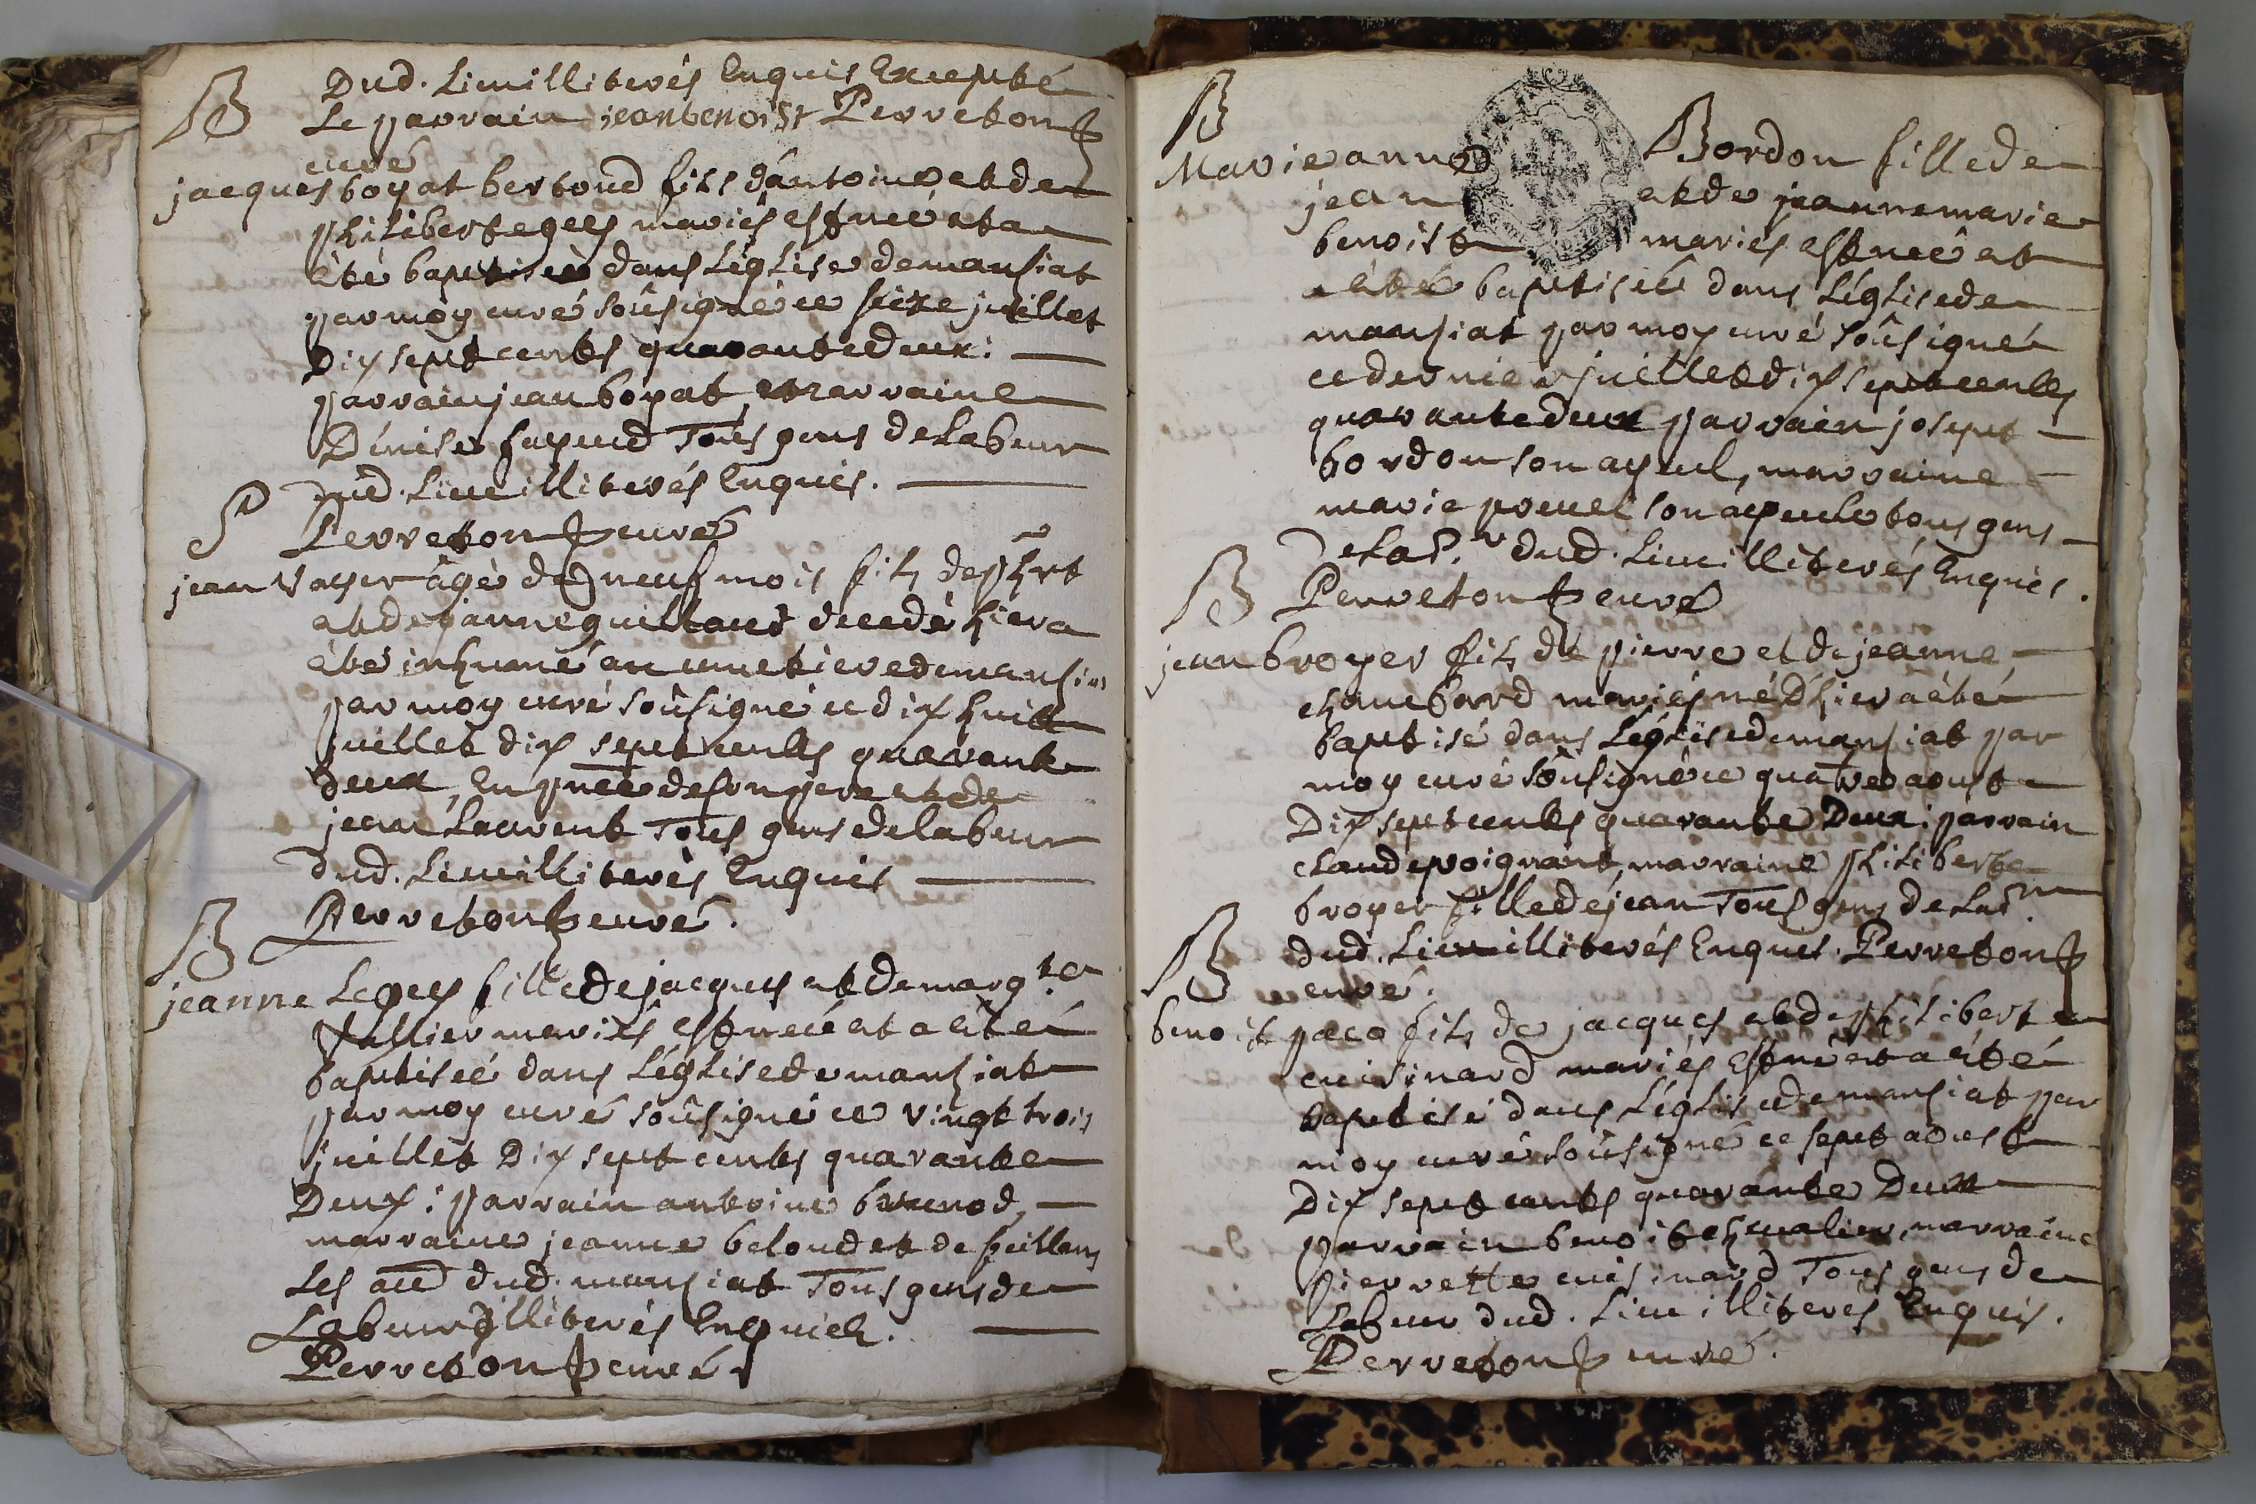 B
Dud. Lieu illiterés Enquis Excepté
Le parrain jean benoist Perreton p
curé
jacques boyat bertoud fils d'antoine et de
philiberte gees mariés est neé et a
êté baptiseé dans L'église de mansiat
par moy curé soûsigné ce seize juillet
Dix sept cents quarante deux :
parrain jean boyat, marraine
Denise payeud Tous gens de Labeur
dud. Lieu illiterés Enquis.
S
Perreton p curé
jean Vayer âgé de neuf mois fils de phrt
et de janne guillaud decedé hier a
êté inhumé au cimetiere de mansiat
par moy curé soûsigné ce dix huit
juillet dix sept cents quarante
deux, En pnce de son pere et de
jean Laurent Tous gens de labeur
dud. Lieu illiterés Enquis
Perreton p curé.
B
jeanne Legey fille de jacques et de margte
Vullier mariés est neé et a êté
baptiseé dans L'église de mansiat
par moy curé soûsigné ce vingt trois
juillet Dix sept cents quarante
Deux : parrain antoine brunod,
marraine jeanne beloud et de feillens
Les aud dud. mansiat Tous gens de
Labeur Illiterés Enquis.
Perreton p curé
B
Marie anne Bordon fille de
jean et de jeanne marie
benoist mariés est neé et
a êté baptiseé dans L'église de
mansiat par moy curé soûsigné
ce dernier juillet dix sept cents
quarante deux parrain josept
bordon son ayeul, marraine
marie son ayeule tous gens
de Labr dud. Lieu illiterés Enquis.
B
Perreton p curé
jean broyer fils de pierre et de jeanne
chambard mariés né D'hier a êté
baptisé dans L'église de mansiat par
moy curé soûsigné ce quatre aoust
Dix sept cents quarante Deux : parrain
claude poignant, marraine philiberte
broyer fille de jean Tous gens de Labr
B
dud. Lieu illiterés Enquis. Perreton p
curé.
benoit paco fils de jacques et de philiberte
cuisinard mariés est né et a êté
baptisé dans L'église de mansiat par
moy curé soûsigné ce sept aoust
Dix sept cents quarante Deux
parrain benoit chevalier, marraine
pierrette cuisinard Tous gens de
Labeur dud. Lieu illiterés Enquis.
Perreton p curé.